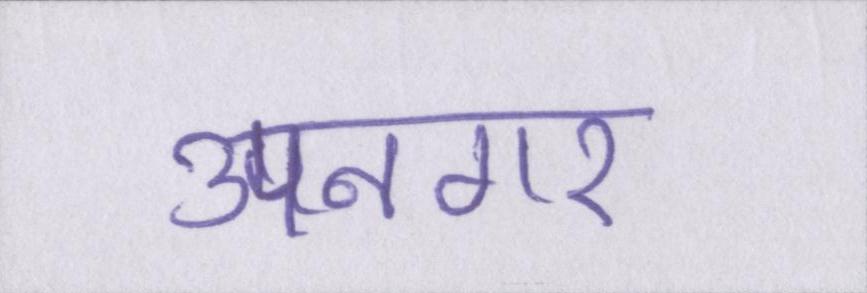 उपनगर